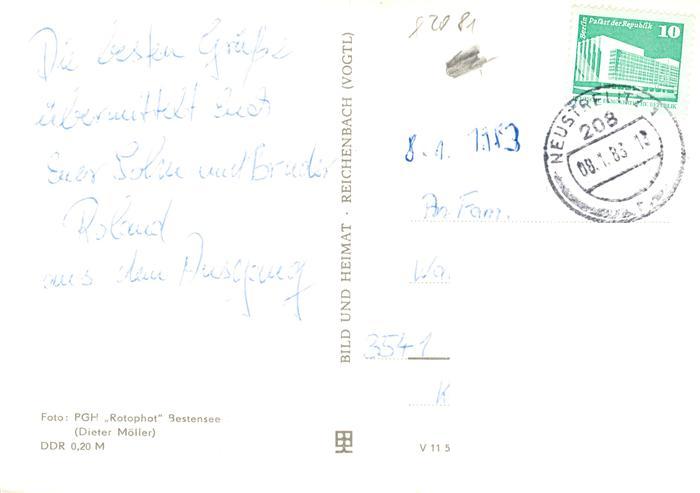 Die besten Grüße
übermittelt Euch
Euer Sohn und Bruder
Roland
aus dem Ausgang
Foto: PGH „Rotophot" Bestensee
(Dieter Möller)
DDR 0,20 M
BILD UND HEIMAT · REICHENBACH (VOGTL)
V 11 5
8.1.1983
An Fam.
Wa.
3541
K
Berlin Palast der Republik
10
NEUSTRELITZ
208
08.1.83